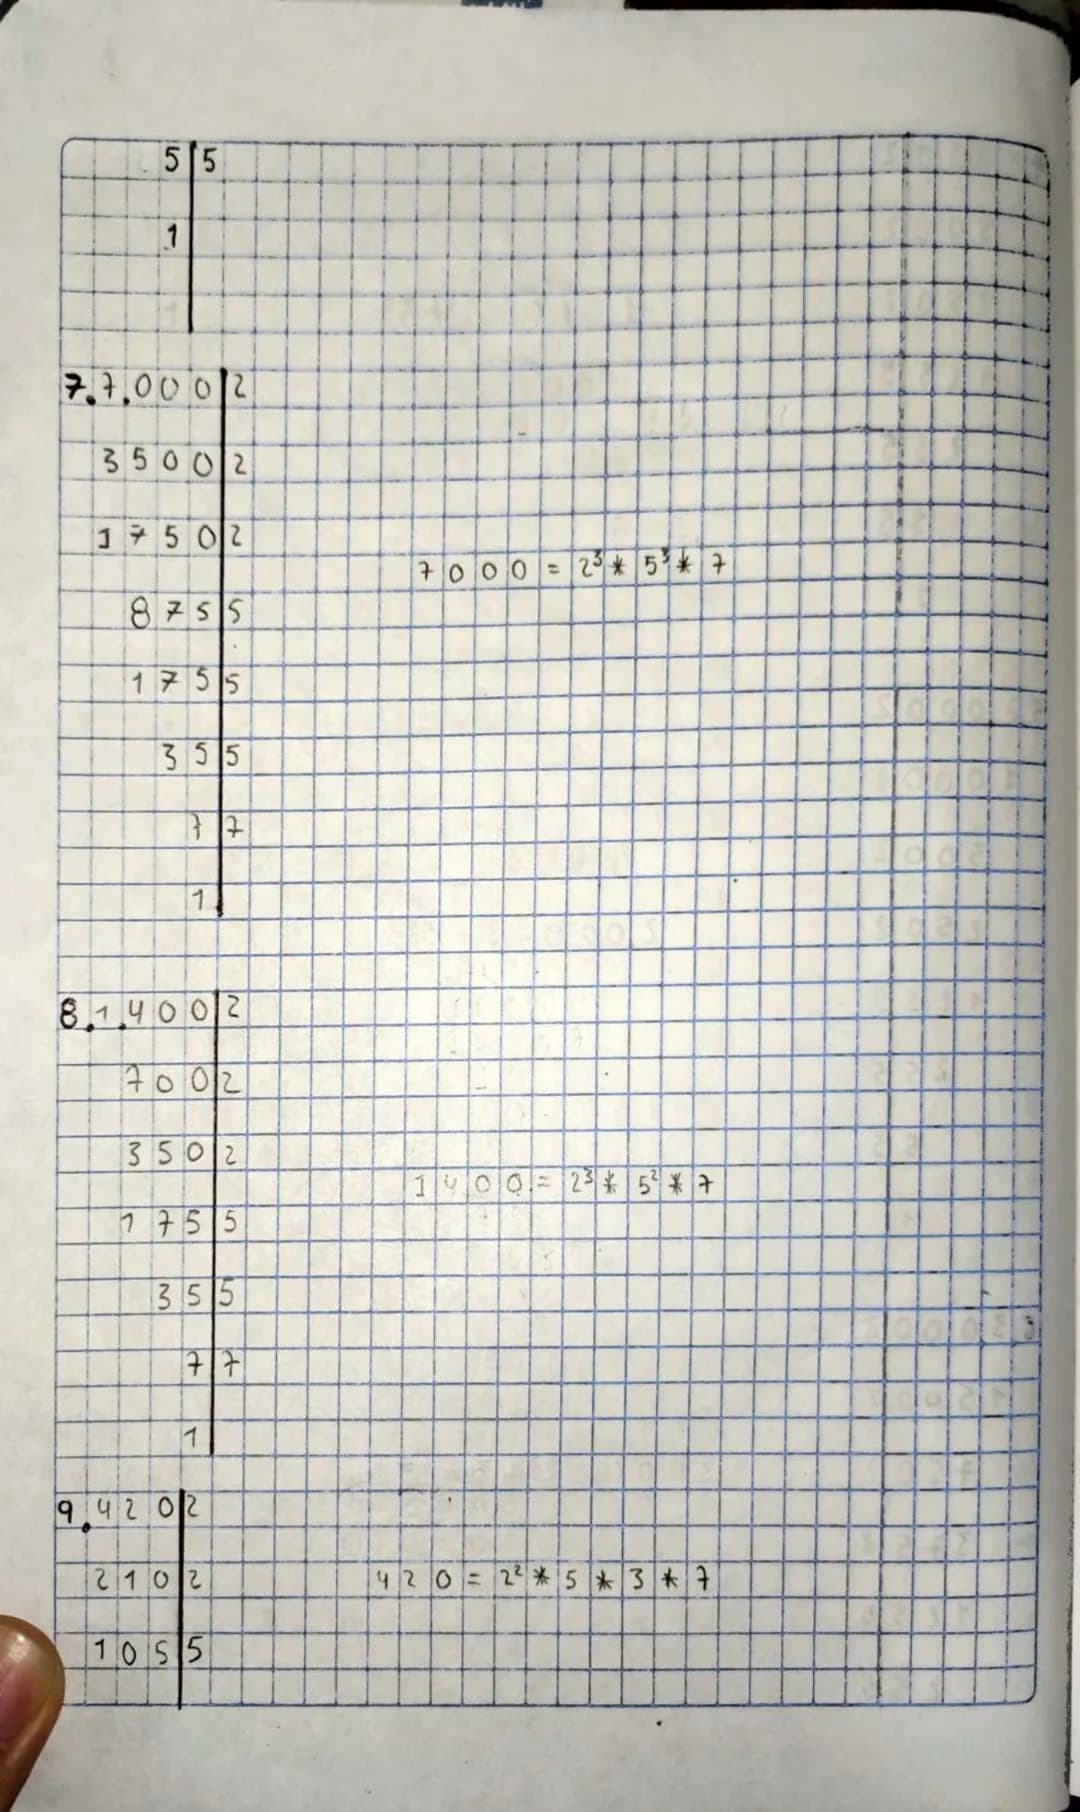 5 | 5
1
7. 7.000 | 2
3500 | 2
1750 | 2
7000 = 2³ * 5³ * 7
875 | 5
175 | 5
35 | 5
7 | 7
1
8. 1.400 | 2
700 | 2
350 | 2
1400 = 2³ * 5² * 7
175 | 5
35 | 5
7 | 7
1
9. 420 | 2
210 | 2 420 = 2² * 5 * 3 * 7
105 | 5